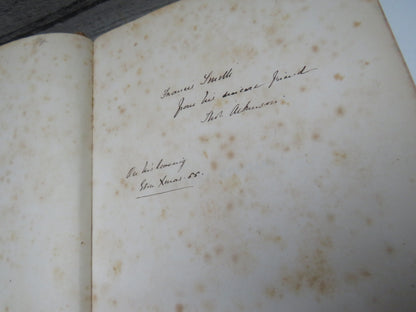 Francis Smith
from his sincere friend
Thos Atkinson.
On his leaving
Eton Xmas 55.